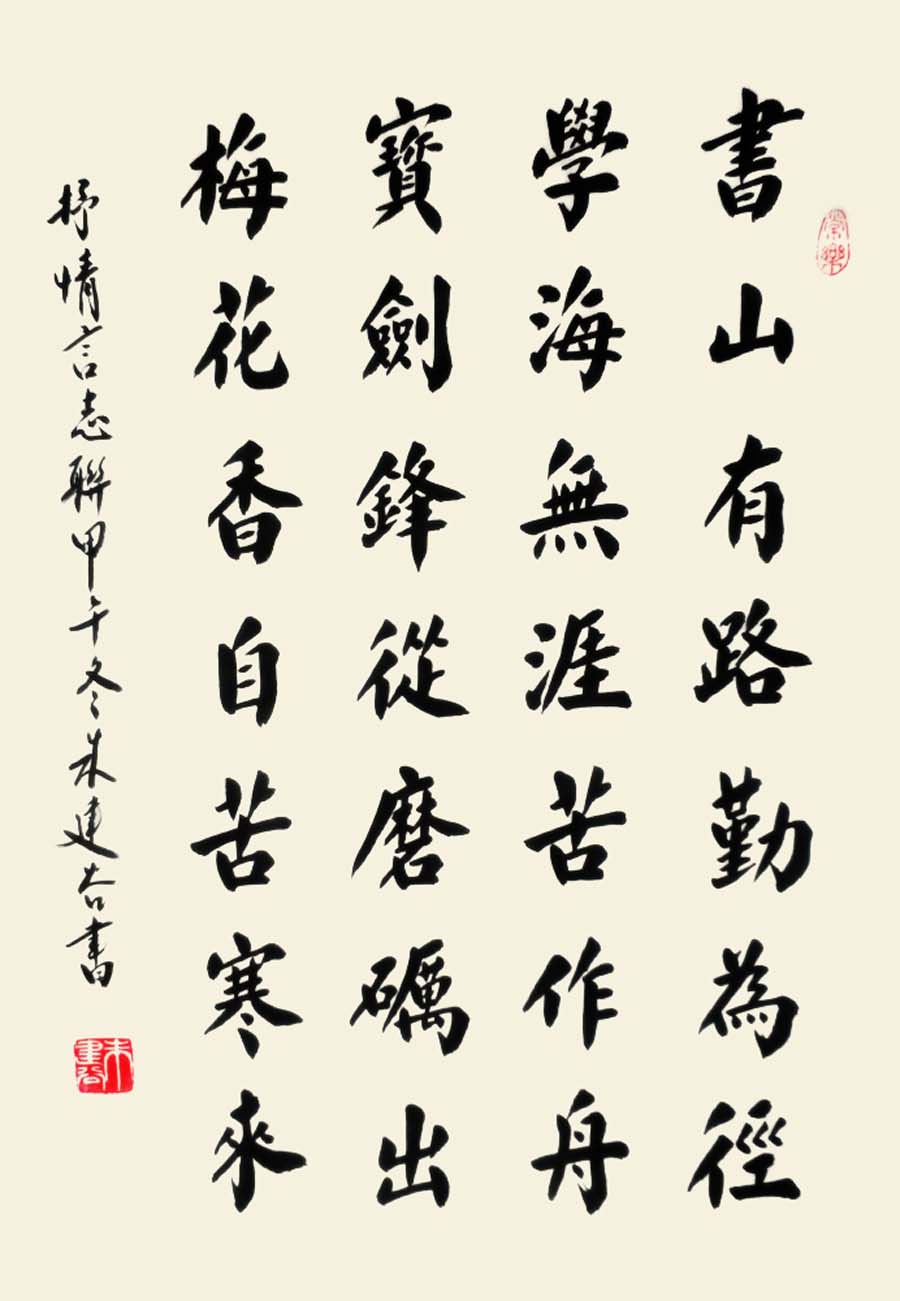 書山有路勤為徑
學海無涯苦作舟
寶劍鋒從磨礪出
梅花香自苦寒來
抒情言志聯甲午冬朱建谷書